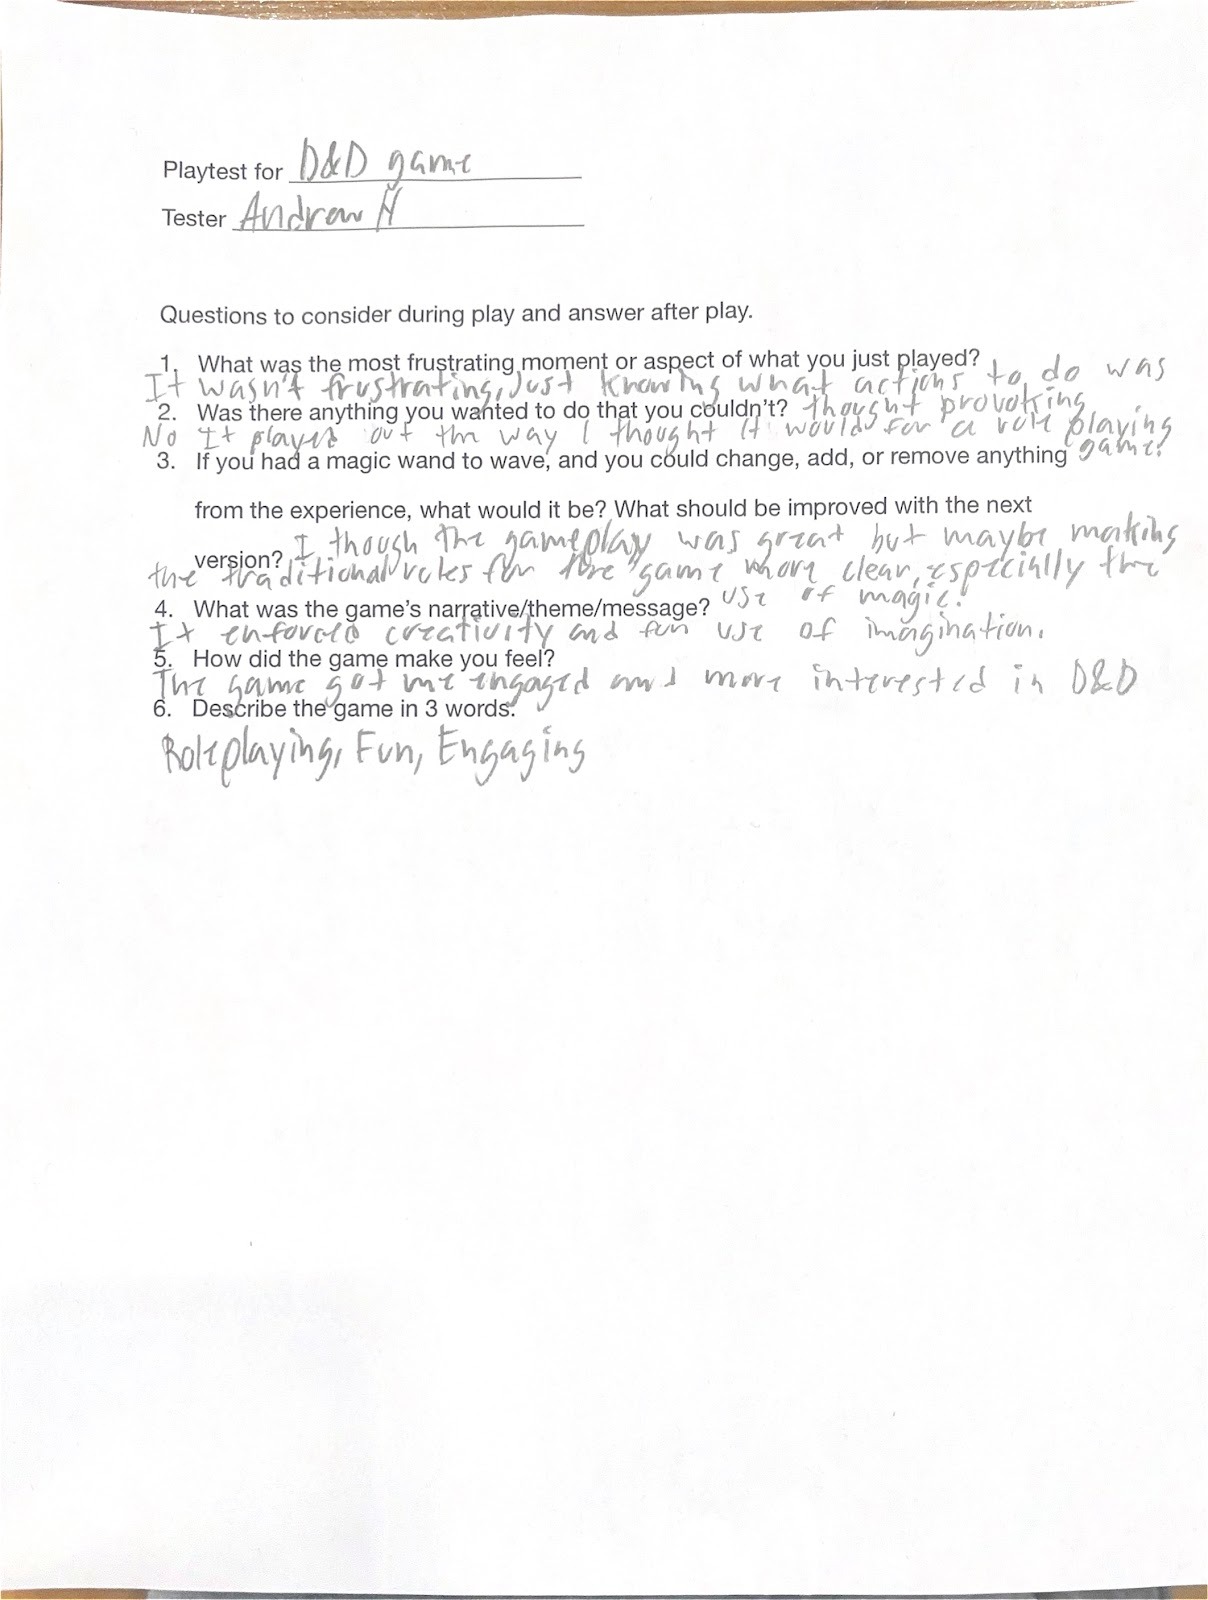 Playtest for D&D game
Tester Andrew N
Questions to consider during play and answer after play.
1. What was the most frustrating moment or aspect of what you just played?
It wasn't frustrating, just knowing what actions to do was
thought provoking
2. Was there anything you wanted to do that you couldn't?
No It played out the way I thought it would for a role playing
game.
3. If you had a magic wand to wave, and you could change, add, or remove anything
from the experience, what would it be? What should be improved with the next
version?
I though the gameplay was great but maybe making
the traditional rules for the game more clear, especially the
use of magic.
4. What was the game's narrative/theme/message?
It enforced creativity and fun use of imagination.
5. How did the game make you feel?
The game got me engaged and more interested in D&D
6. Describe the game in 3 words.
Roleplaying, Fun, Engaging